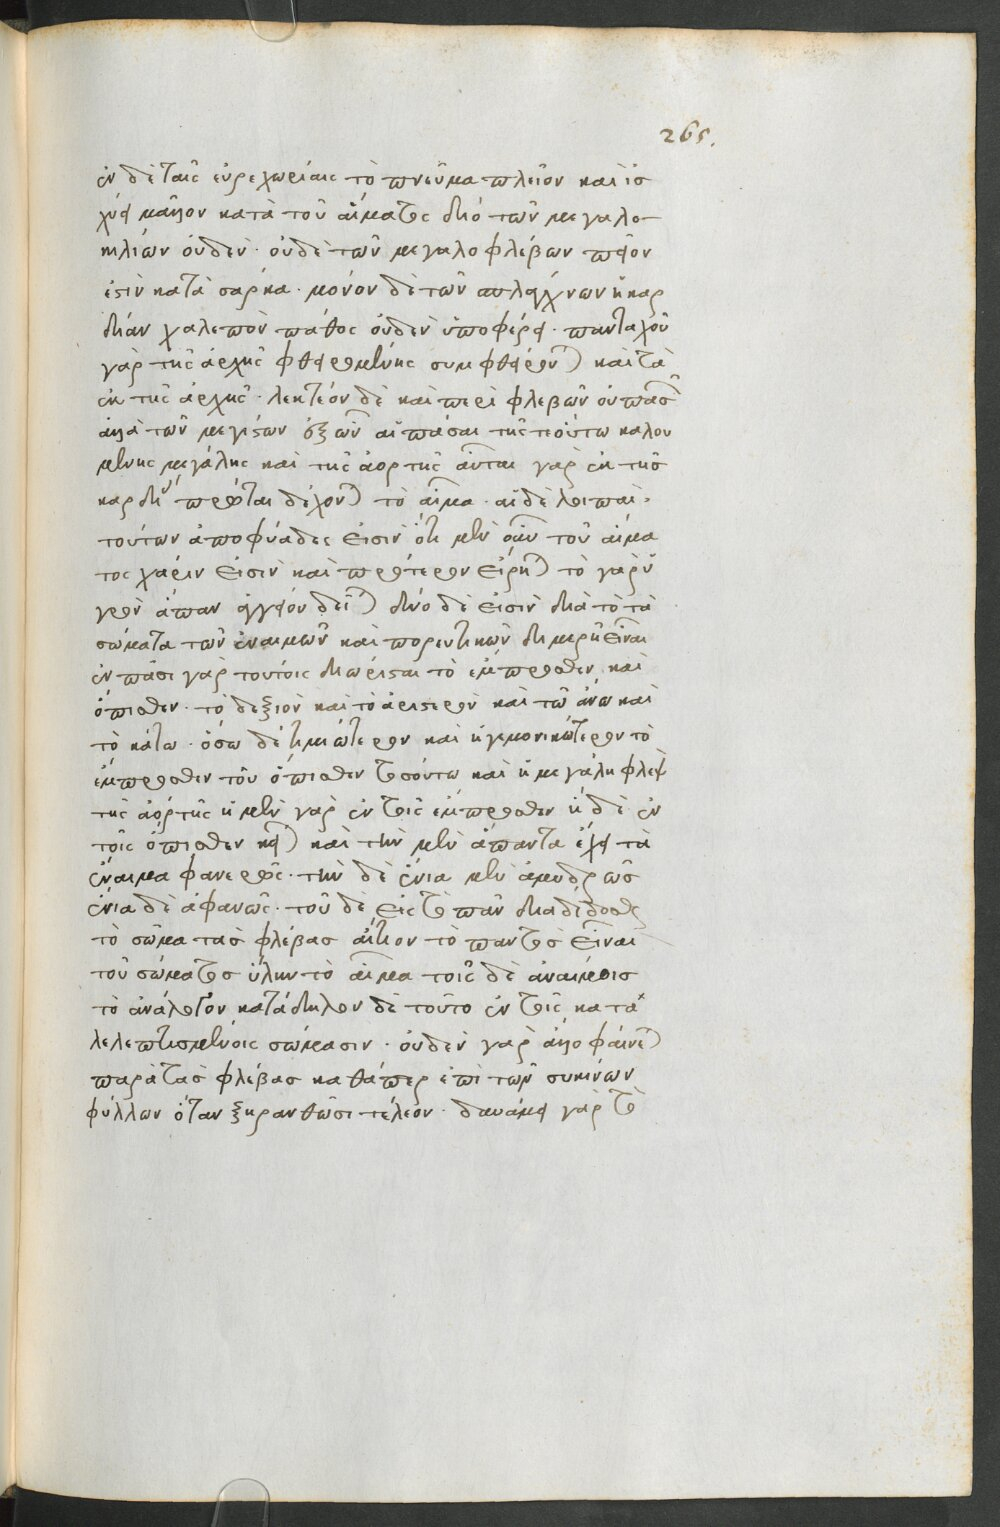 265.
ἐν δὲ ταῖς εὐρυχωρίαις τὸ πνεῦμα πλεῖον καὶ ἰσ
χύει μᾶλλον κατὰ τοῦ αἵματος διό τῶν μεγαλο-
κιλιῶν οὐδὲν · οὐδὲ τῶν μεγαλοφλέβων πῖον
ἐστὶν κατὰ σάρκα · μόνον δὲ τῶν σπλάγχνων ἡ καρ
δίαν χαλεπὸν πάθος οὐδὲν ὑποφέρει · πανταχοῦ
γὰρ τῆς ἀρχῆς φθειρομένης συμφθείρονται καὶ τὰ
ἐκ τῆς ἀρχῆς · λεκτέον δὲ καὶ περὶ φλεβῶν οὐ πασῶν
ἀλλὰ τῶν μεγίστων ἐξ ὧν αἱ πᾶσαι τῆς τε οὕτω καλου
μένης μεγάλης καὶ τῆς ἀορτῆς αὗται γὰρ ἐκ τῆς
καρδίας πρῶται δέχονται τὸ αἷμα · αἱ δὲ λοιπαὶ ·
τούτων ἀποφυάδες εἰσὶν ὅτι μὲν οὖν τοῦ αἵμα
τος χάριν εἰσὶν καὶ πρότερον εἴρηται τὸ γὰρ ὑ
γρὸν ἅπαν ἀγγείου δεῖται δύο δὲ εἰσὶν διὰ τὸ τὰ
σώματα τῶν ἐναίμων καὶ πορευτικῶν διμερῆ εἶναι
ἐν πᾶσι γὰρ τούτοις διώρισται τὸ ἔμπροσθεν καὶ
ὄπισθεν · τὸ δεξιὸν καὶ τὸ ἀριστερὸν καὶ τῶ ἄνω καὶ
τὸ κάτω · ὅσω δὲ τιμιώτερον καὶ ἡγεμονικώτερον τὸ
ἔμπροσθεν τοῦ ὄπισθεν τοσούτω καὶ ἡ μεγάλη φλὲψ
τῆς ἀορτῆς ἡ μὲν γὰρ ἐν τοῖς ἔμπροσθεν ἡ δὲ ἐν
τοῖς ὄπισθεν κεῖται καὶ τὴν μὲν ἅπαντα ἔχει τὰ
ἔναιμα φανερῶς · τὴν δὲ ἔνια μὲν ἀμυδρῶς
ἔνια δὲ ἀφανῶς · τοῦ δὲ εἰς τὸ πᾶν διαδίδοσθαι
τὸ σῶμα τὰς φλέβας αἴτιον τὸ παντὸς εἶναι
τοῦ σώματος ὕλην τὸ αἷμα τοῖς δὲ ἀναίμοις
τὸ ἀνάλογον κατάδηλον δὲ τοῦτο ἐν τοῖς κατα
λελεπτισμένοις σώμασιν · οὐδὲν γὰρ ἄλλο φαίνεται
παρὰ τὰς φλέβας καθάπερ ἐπὶ τῶν συκίνων
φύλλων ὅταν ξηρανθῶσι τέλεον · δυνάμει γὰρ τὸ